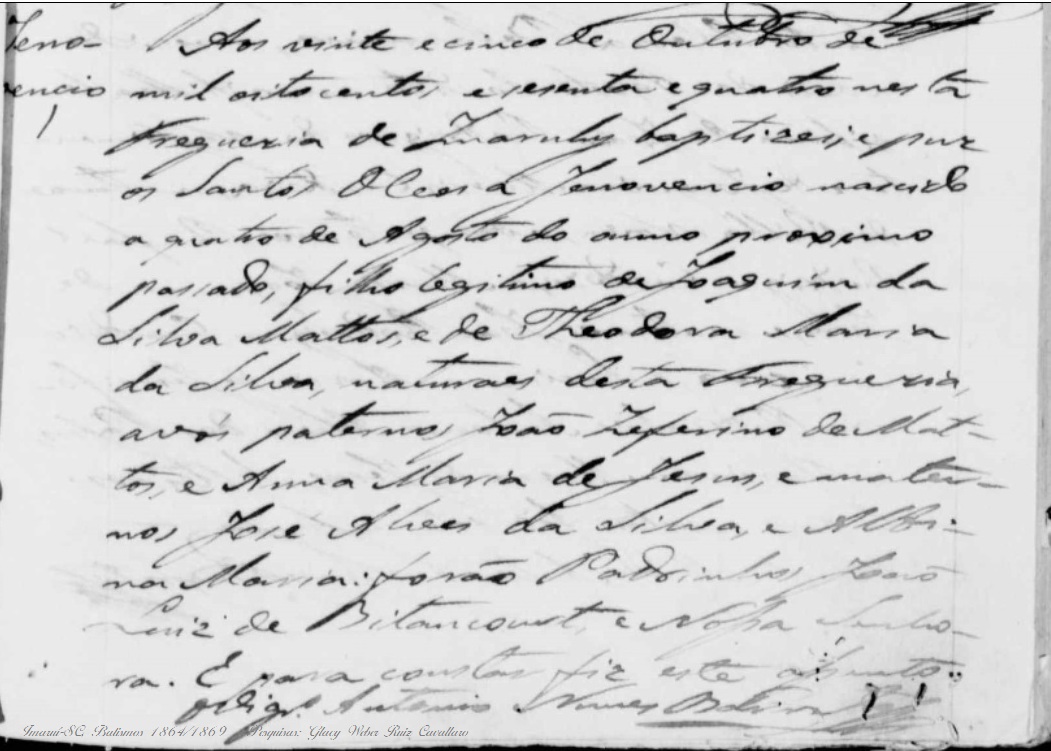 Jeno-
vencio
Aos vinte e cinco de Outubro de
mil oitocentos e sesenta e quatro nesta
Freguezia de Imaruhy baptizei, e puz
os Santos Oleos a Jenovencio nascido
a quatro de Agosto do anno proximo
passado, filho legitimo de Joaquim da
Silva Mattos, e de Theodora Maria
da Silva, naturaes desta Freguezia,
avós paternos João Zeferino de Mat-
tos, e Anna Maria de Jesus, e mater-
nos José Alves da Silva, e Albi-
na Maria: forão Padrinhos João
Luiz de Bitancourt, e Nossa Senho-
ra. E para constar fiz este assento.
O Vigr.º Antonio Nunes
Imaruí-SC Batismos 1864/1869 Pesquisas: Glacy Weber Ruiz Cavallaro